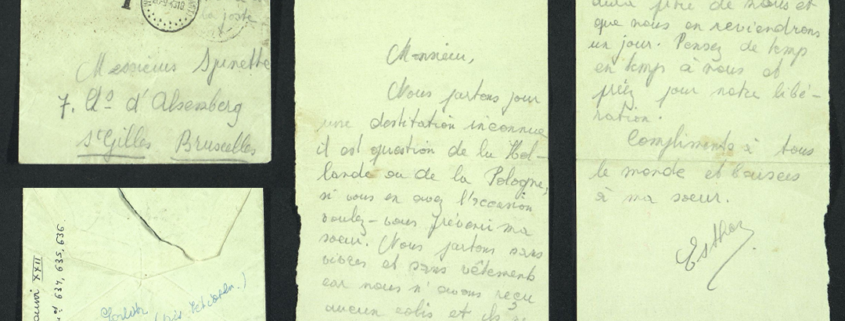 la poste
Messieurs Spinette
7. Ch^o d'Alsemberg
S^t Gilles Bruxelles
XXII
637, 635, 636.
Monsieur,
Nous partons pour
une destitation inconnue
il est question de la Hol-
lande ou de la Pologne,
si vous en avez l'occasion
voulez-vous prévenir ma
soeur. Nous partons sans
vivres et sans vêtements
car nous n'avons reçu
aucun colis et ils
que nous en reviendrons
un jour. Pensez de temp
en temp à nous et
priéz pour notre libé-
ration.
Compliments à tous
le monde et baisers
à ma soeur.
Esther